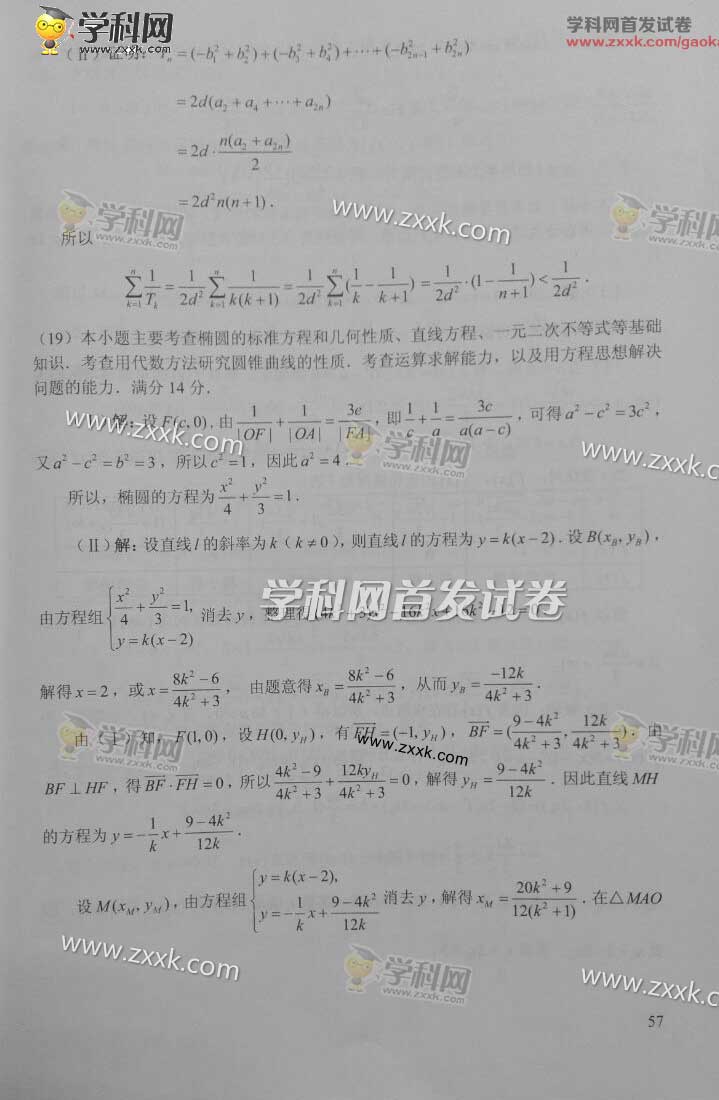 学科网
zxxk.com
学科网首发试卷
www.zxxk.com/gaoka
(Ⅱ)证明:T_n=(-b_1^2+b_2^2)+(-b_3^2+b_4^2)+⋯+(-b_{2n-1}^2+b_{2n}^2)
=2d(a_2+a_4+⋯+a_{2n})
=2d·\frac{n(a_2+a_{2n})}{2}
=2d^2n(n+1).
学科网
zxxk.com
www.zxxk.com
学科网
所以
\sum_{k=1}^{n}\frac{1}{T_k}=\frac{1}{2d^2}\sum_{k=1}^{n}\frac{1}{k(k+1)}=\frac{1}{2d^2}\sum_{k=1}^{n}(\frac{1}{k}-\frac{1}{k+1})=\frac{1}{2d^2}·(1-\frac{1}{n+1})<\frac{1}{2d^2}.
(19)本小题主要考查椭圆的标准方程和几何性质、直线方程、一元二次不等式等基础
知识.考查用代数方法研究圆锥曲线的性质.考查运算求解能力,以及用方程思想解决
问题的能力.满分14分.
解:设F(c,0),由\frac{1}{|OF|}+\frac{1}{|OA|}=\frac{3e}{|FA|},即\frac{1}{c}+\frac{1}{a}=\frac{3c}{a(a-c)},可得a^2-c^2=3c^2,
www.zxxk.com
学科网
zxxk.com
www.zxxk.com
又a^2-c^2=b^2=3,所以c^2=1,因此a^2=4.
所以,椭圆的方程为\frac{x^2}{4}+\frac{y^2}{3}=1.
(Ⅱ)解:设直线l的斜率为k(k≠0),则直线l的方程为y=k(x-2).设B(x_B,y_B),
学科网首发试卷
由方程组{\frac{x^2}{4}+\frac{y^2}{3}=1, y=k(x-2) 消去y,整理得
解得x=2,或x=\frac{8k^2-6}{4k^2+3},由题意得x_B=\frac{8k^2-6}{4k^2+3},从而y_B=\frac{-12k}{4k^2+3}.
学科网
zxxk.com
www.zxxk.com
学科网
由(Ⅰ)知,F(1,0),设H(0,y_H),有\overrightarrow{FH}=(-1,y_H),\overrightarrow{BF}=(\frac{9-4k^2}{4k^2+3},\frac{12k}{4k^2+3}).由
BF⊥HF,得\overrightarrow{BF}·\overrightarrow{FH}=0,所以\frac{4k^2-9}{4k^2+3}+\frac{12ky_H}{4k^2+3}=0,解得y_H=\frac{9-4k^2}{12k}.因此直线MH
的方程为y=-\frac{1}{k}x+\frac{9-4k^2}{12k}.
设M(x_M,y_M),由方程组{y=k(x-2), y=-\frac{1}{k}x+\frac{9-4k^2}{12k} 消去y,解得x_M=\frac{20k^2+9}{12(k^2+1)}.在△MAO
www.zxxk.com
学科网
zxxk.com
www.zxxk.com
57